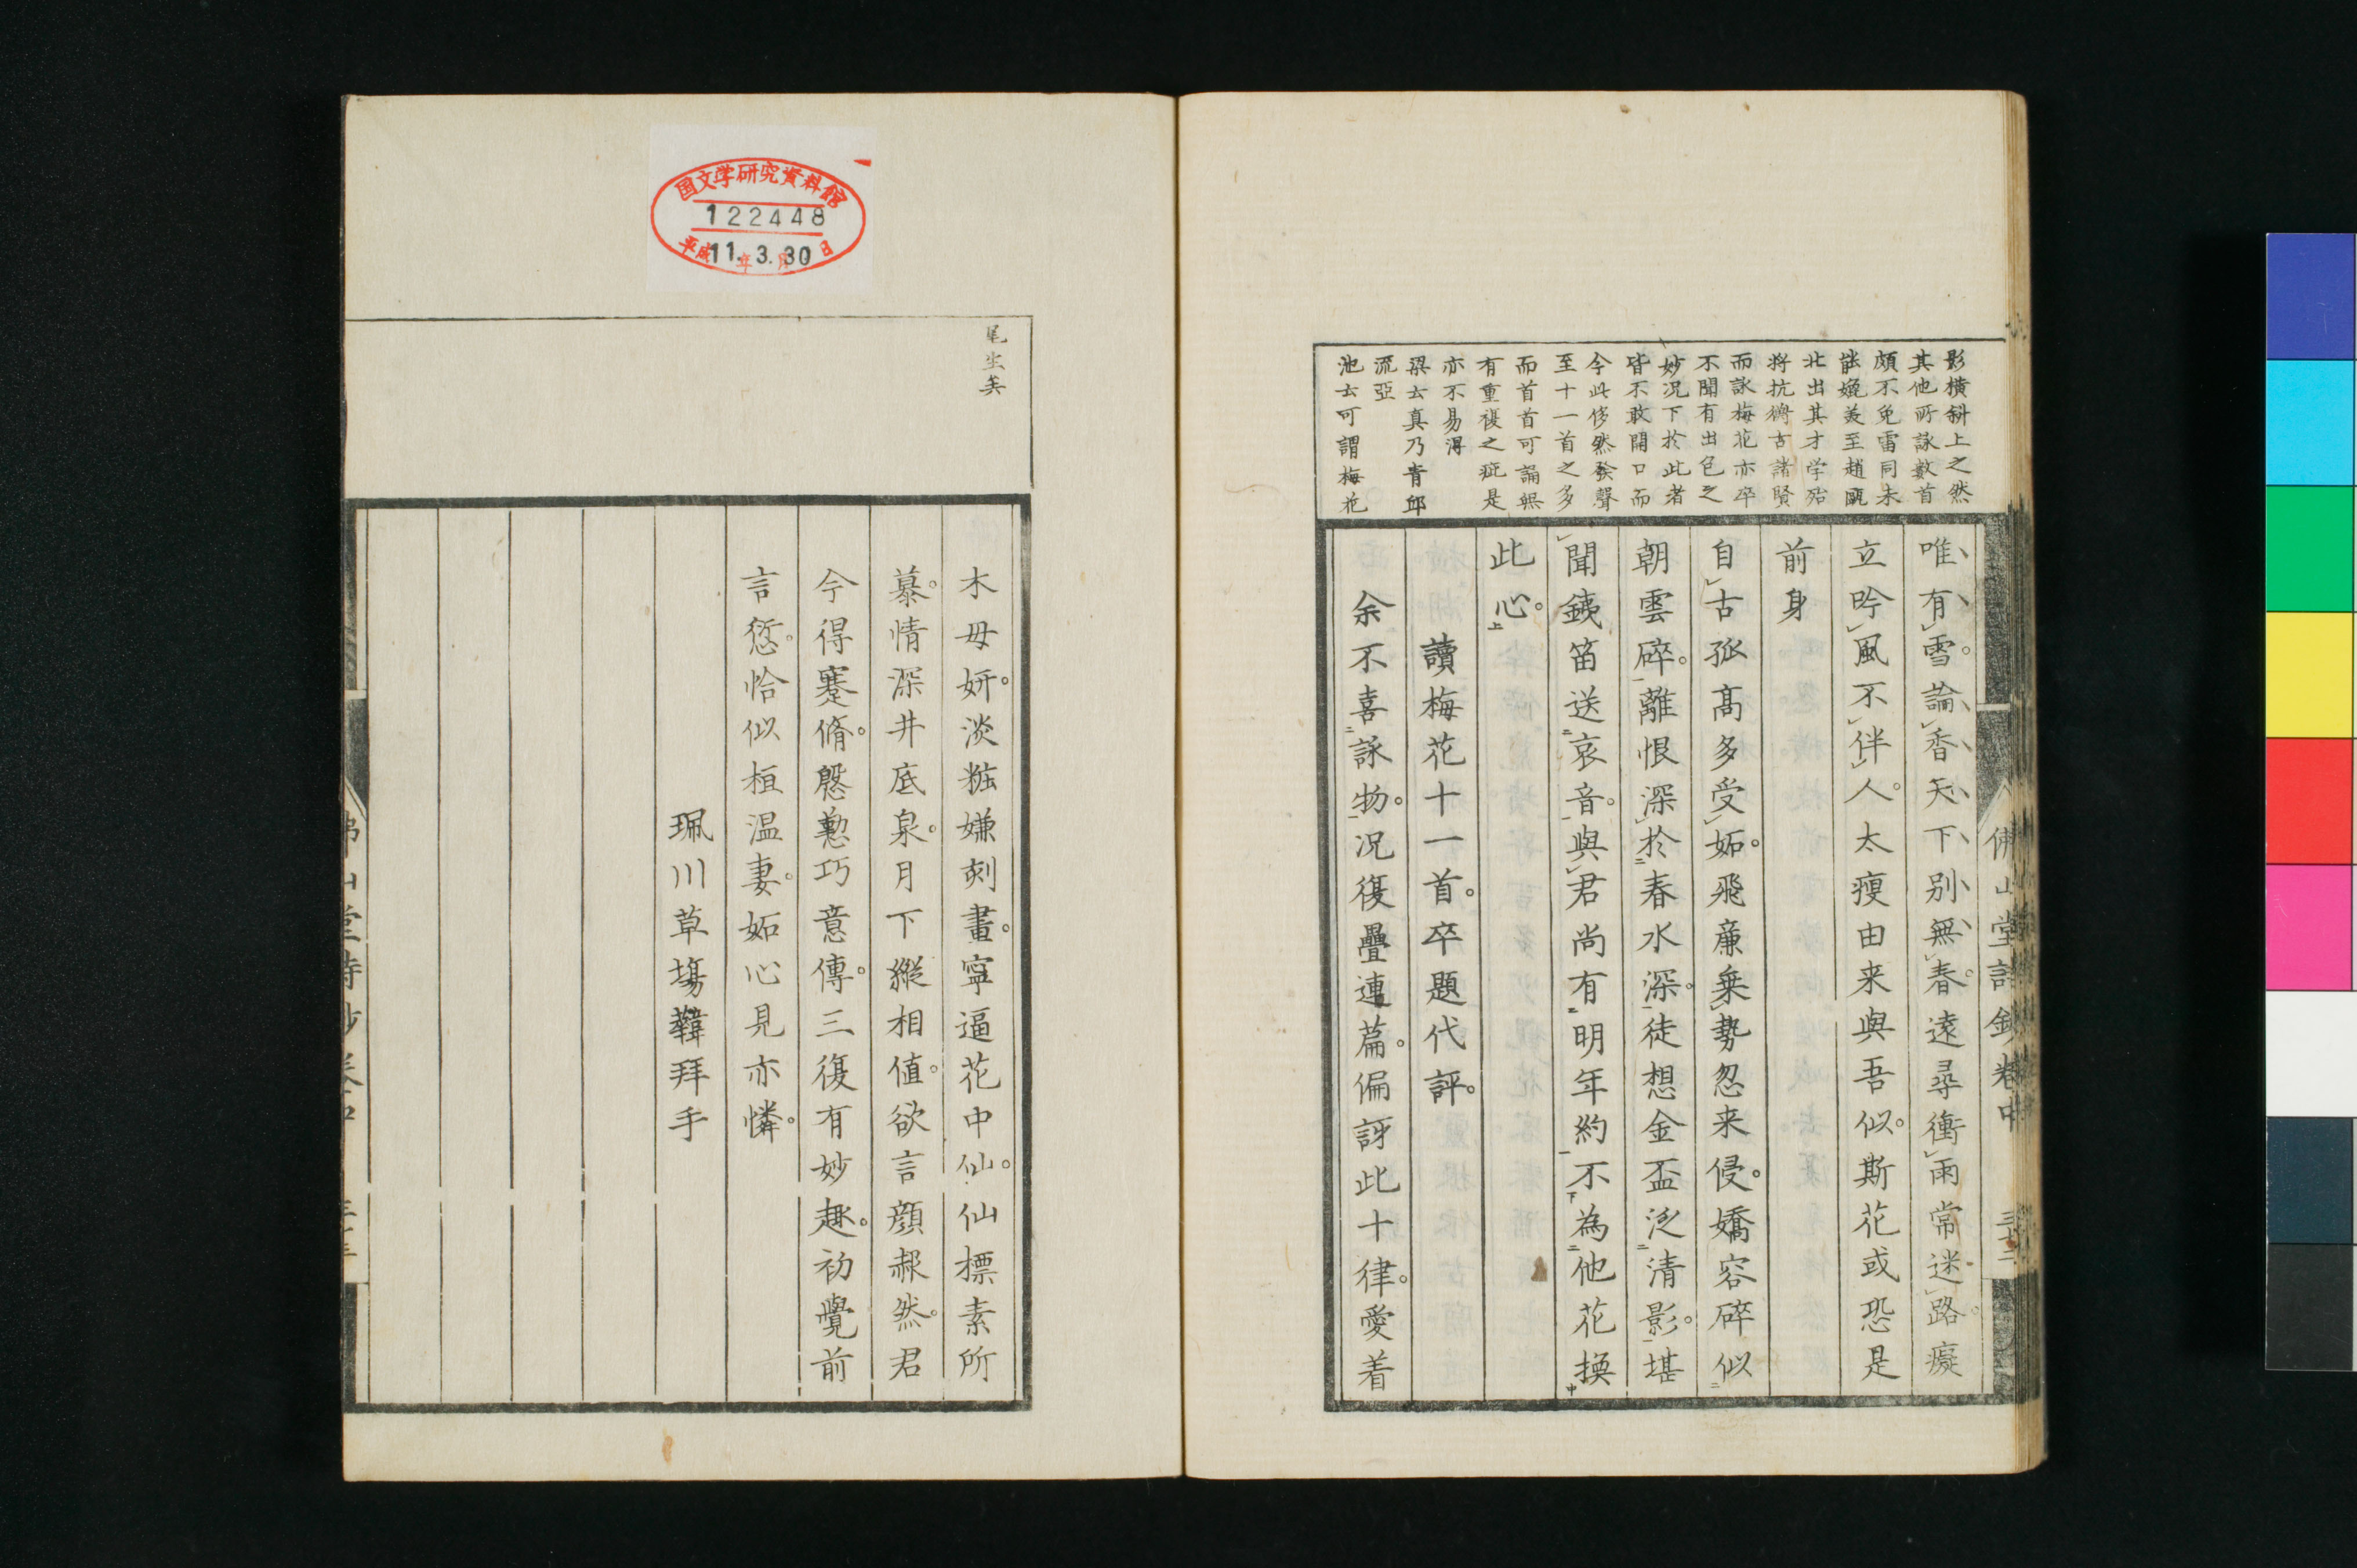 影横斜上之然
其他所詠數首
頗不免雷同未
能媲美至趙甌
北出其才学殆
将抗衡古諸賢
而詠梅花亦卒
不聞有出色之
妙况下於此者
皆不敢開口而
今此侈然發聲
至十一首之多
而首首可誦無
有重複之疵是
亦不易得
梁云真乃青邱
流亞
池云可謂梅花
唯有雪論香天下別無春遠尋衝雨常迷路癡
立吟風不伴人太瘦由来與吾似斯花或恐是
前身
自古孤髙多受妬飛廉乗勢忽来侵嬌容碎似
朝雲碎離恨深於春水深徒想金盃泛清影堪
聞銕笛送哀音與君尚有明年約不為他花換
此心
讀梅花十一首卒題代評
余不喜詠物况復疊連篇偏訝此十律愛着
佛山堂詩鈔卷中
三十二
尾生美
木母妍淡粧嫌刻畫寧逼花中仙仙標素所
慕情深井底泉月下縱相値欲言顔赧然君
今得蹇脩慇懃巧意傳三復有妙趣初覺前
言愆恰似桓温妻妬心見亦憐
珮川草塲韡拜手
国文学研究資料館
122448
平成11年3月30日